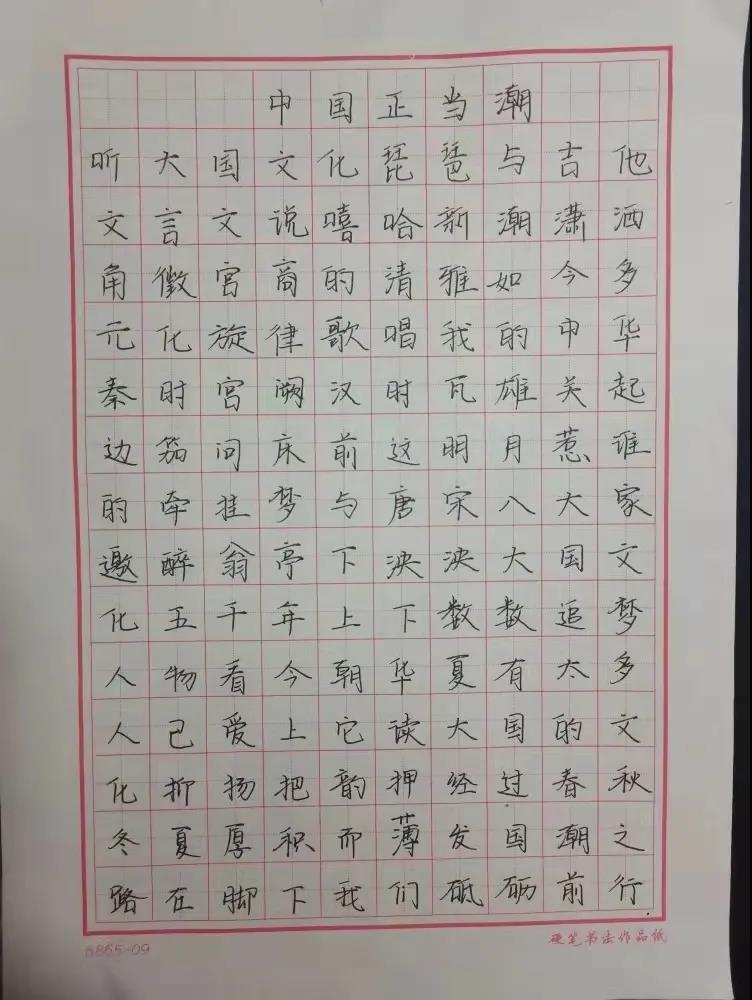 中国正当潮
听大国文化琵琶与吉他
文言文说嘻哈新潮潇洒
角徵宫商的清雅如今多
元化旋律歌唱我的中华
秦时宫阙汉时瓦雄关起
边笳问床前这明月惹谁
的牵挂梦与唐宋八大家
邀醉翁亭下泱泱大国文
化五千年上下数数追梦
人物看今朝华夏有太多
人已爱上它读大国的文
化抑扬把韵押经过春秋
冬夏厚积而薄发国潮之
路在脚下我们砥砺前行.
6865-09
硬笔书法作品纸